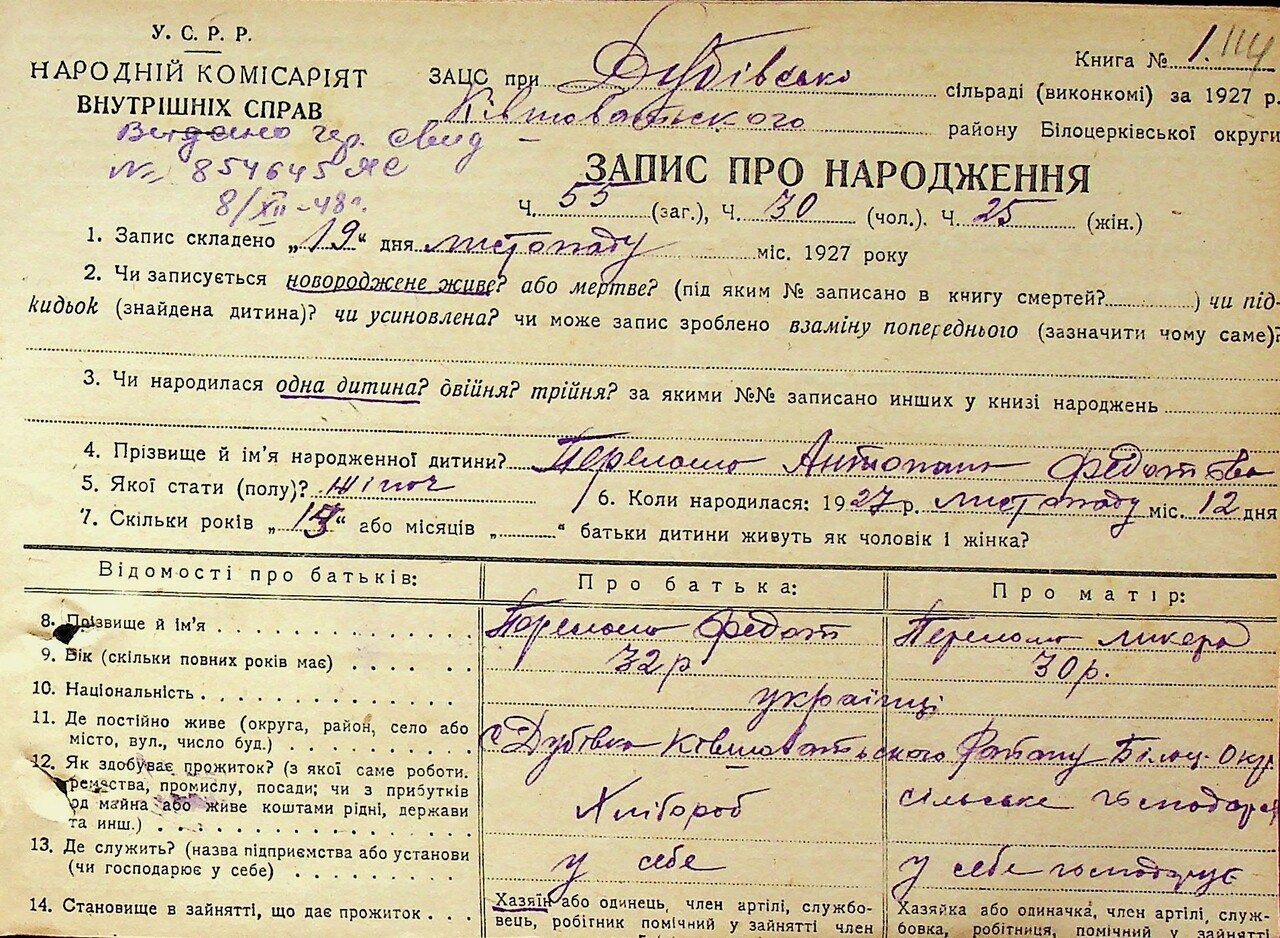 У. С. Р. Р.
НАРОДНІЙ КОМІСАРІЯТ
ВНУТРІШНІХ СПРАВ
Видано свид
№ 854645
8/XII-48г.
Книга № 1.
ЗАЦС при Дубівсько сільраді (виконкомі) за 1927 р.
Ківшоватьского району Білоцерківської округи
ЗАПИС ПРО НАРОДЖЕННЯ
Ч. 55 (заг.), Ч. 30 (чол.). Ч. 25 (жін.)
1. Запис складено „19“ дня листопаду міс. 1927 року
2. Чи записується новороджене живе? або мертве? (під яким № записано в книгу смертей?..........) чи під-
кидьок (знайдена дитина)? чи усиновлена? чи може запис зроблено взаміну попереднього (зазначити чому саме)?
3. Чи народилася одна дитина? двійня? трійня? за якими №№ записано инших у книзі народжень
4. Прізвище й ім'я народженної дитини? Перепомо Федот
5. Якої стати (полу)? жіноч 6. Коли народилася: 1927 р. листопаду міс. 12 дня
7. Скільки років „ “ або місяців „..........“ батьки дитини живуть як чоловік і жінка?
Відомості про батьків: Про батька: Про матір:
8. Прізвище й ім'я Федот Ликера
9. Вік (скільки повних років має) 32 р 30 р.
10. Національність українці
11. Де постійно живе (округа, район, село або
місто, вул., число буд.) с Дубівка Ківшоватьского Району Білоц. Окр
12. Як здобуває прожиток? (з якої саме роботи.
ремества, промислу, посади; чи з прибутків
од майна або живе коштами рідні, держави
та инш.) Хлібороб сільське господарс
13. Де служить? (назва підприємства або установи
(чи господарює у себе) у себе у себе господарує
14. Становище в зайнятті, що дає прожиток
Хазяїн або одинець, член артілі, службо-
вець, робітник помічний у зайнятті член
Хазяйка або одиначка, член артілі, служ-
бовка, робітниця, помічний у зайнятті